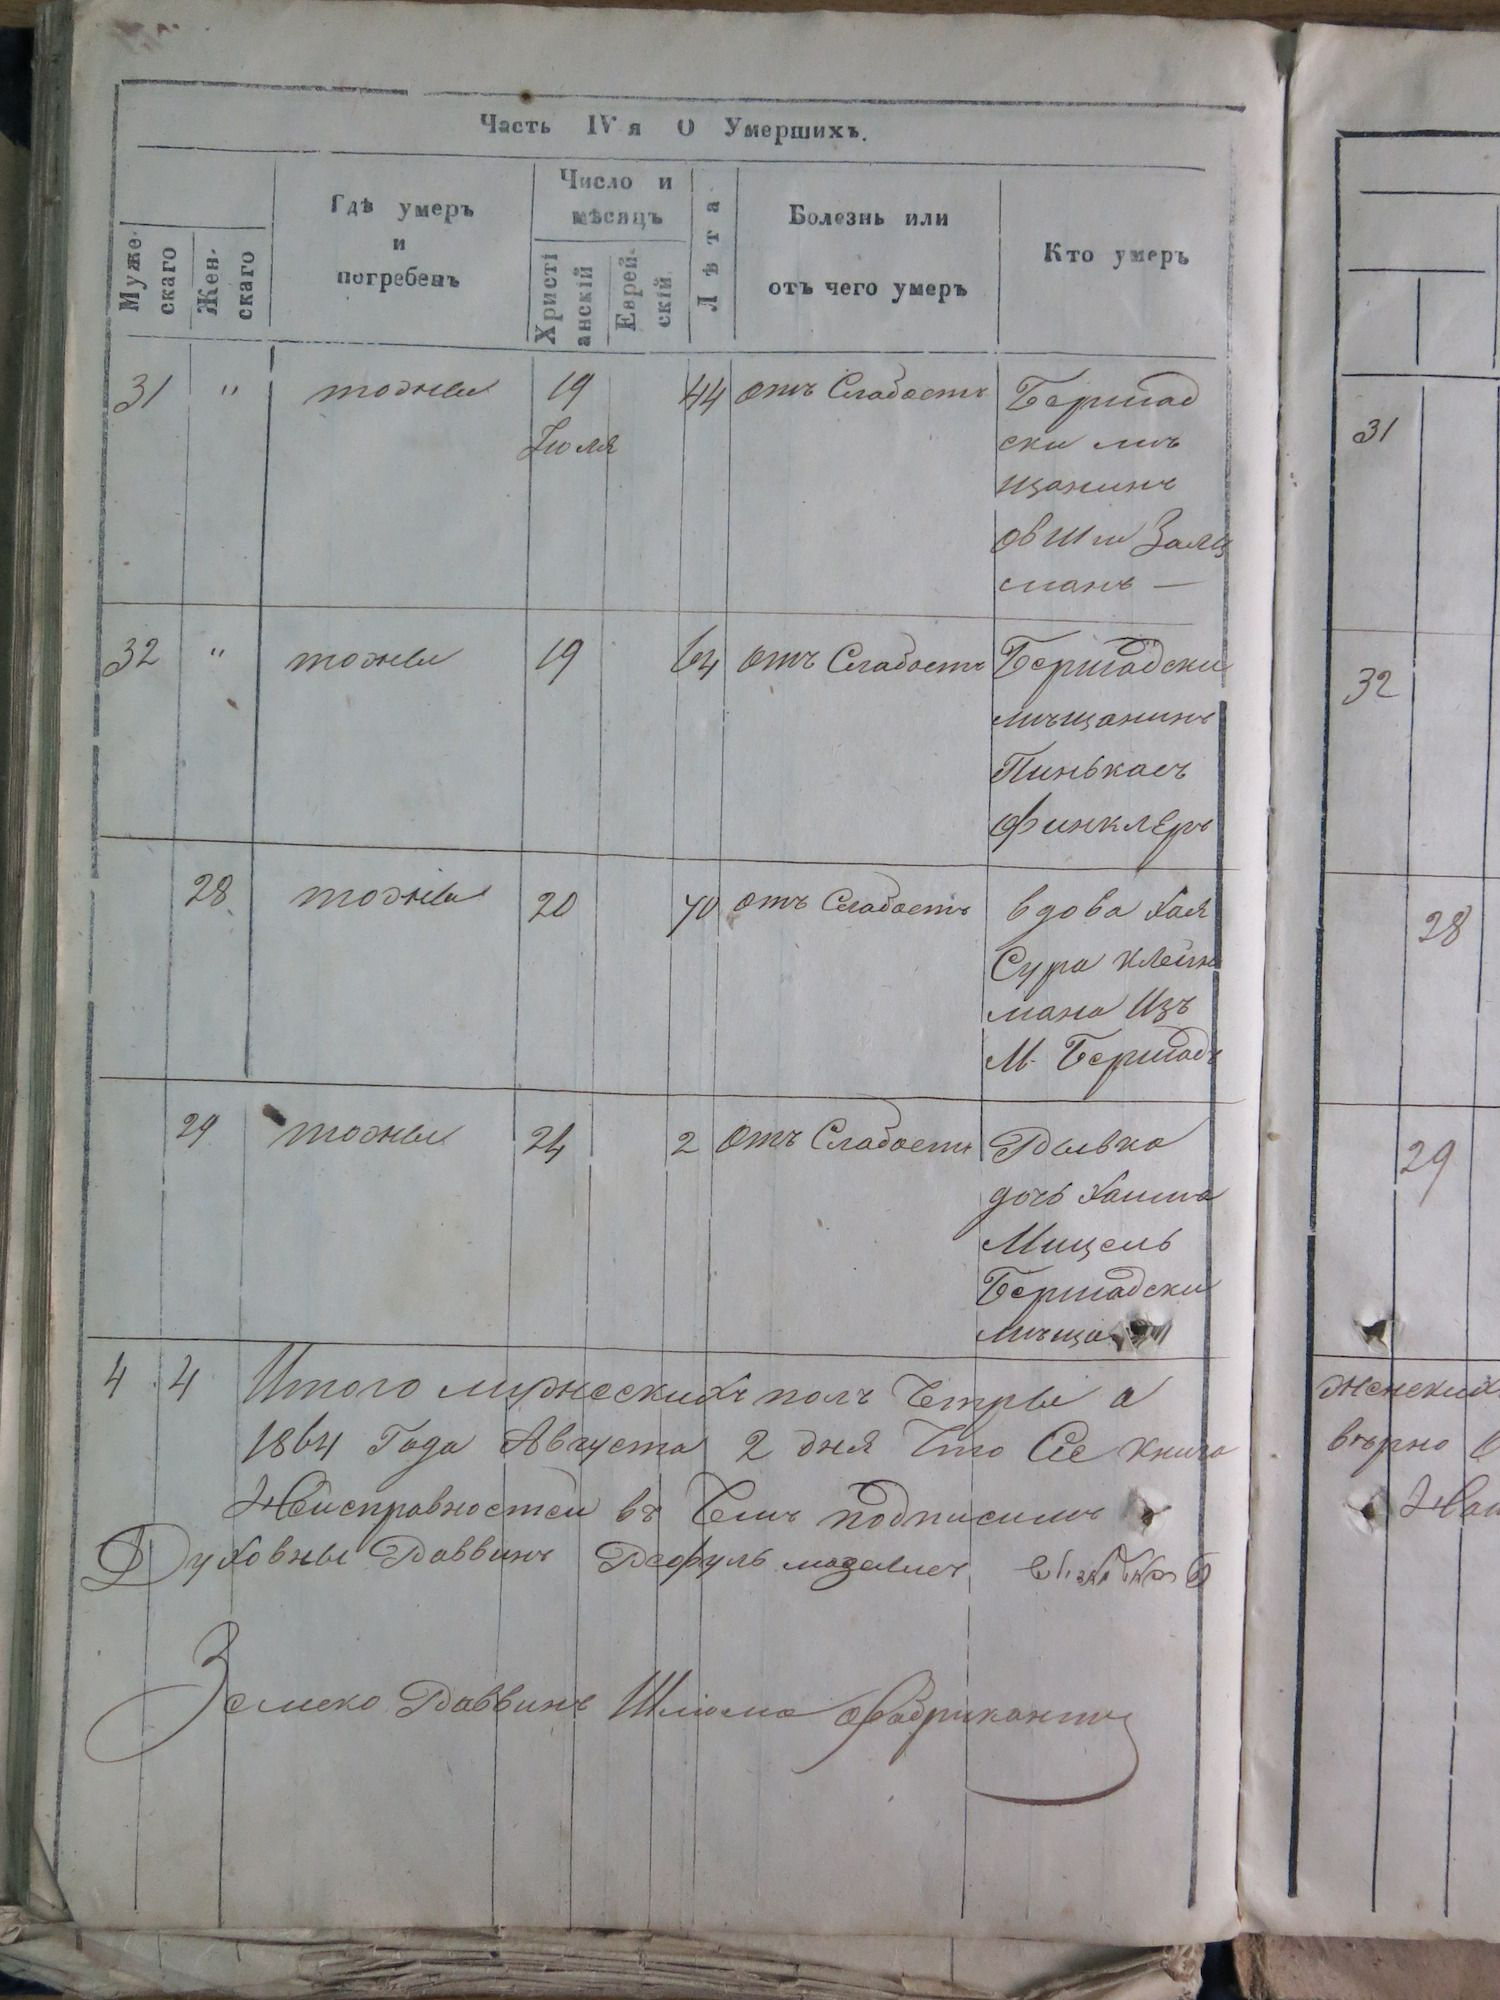 Часть IV я О Умершихъ.
Муже-
скаго
Жен-
скаго
Гдѣ умеръ
и
погребенъ
Число и
мѣсяцъ
Христі
анскій
Еврей-
скій
Лѣта
Болезнь или
отъ чего умеръ
Кто умеръ
31 " тожъи 19 44 отъ Слабость Бершад
Іюля ски мѣ
щанинъ
овши Залц
манъ —
32 " тожъи 19 64 отъ Слабость Бершадски
мѣщанинъ
Пинькасъ
Финклеръ
28 тожъи 20 70 отъ Слабость вдова Хая
Сура Клейн
мана Изъ
М. Бершадъ
29 тожъи 24 2 Отъ Слабости Рывка
дочь Хаима
Мицель
Бершадски
мѣща
4 4 Итого мужескихъ полъ Четыры а
1864 Года Августа 2 дня Что Сіе книга
Неисправностеи въ Чемъ подписимъ
Духовны Раввинъ Рефуль
Земско Раввинъ Шлиома Фабрикантъ
31
32
28
29
женских
вѣрно